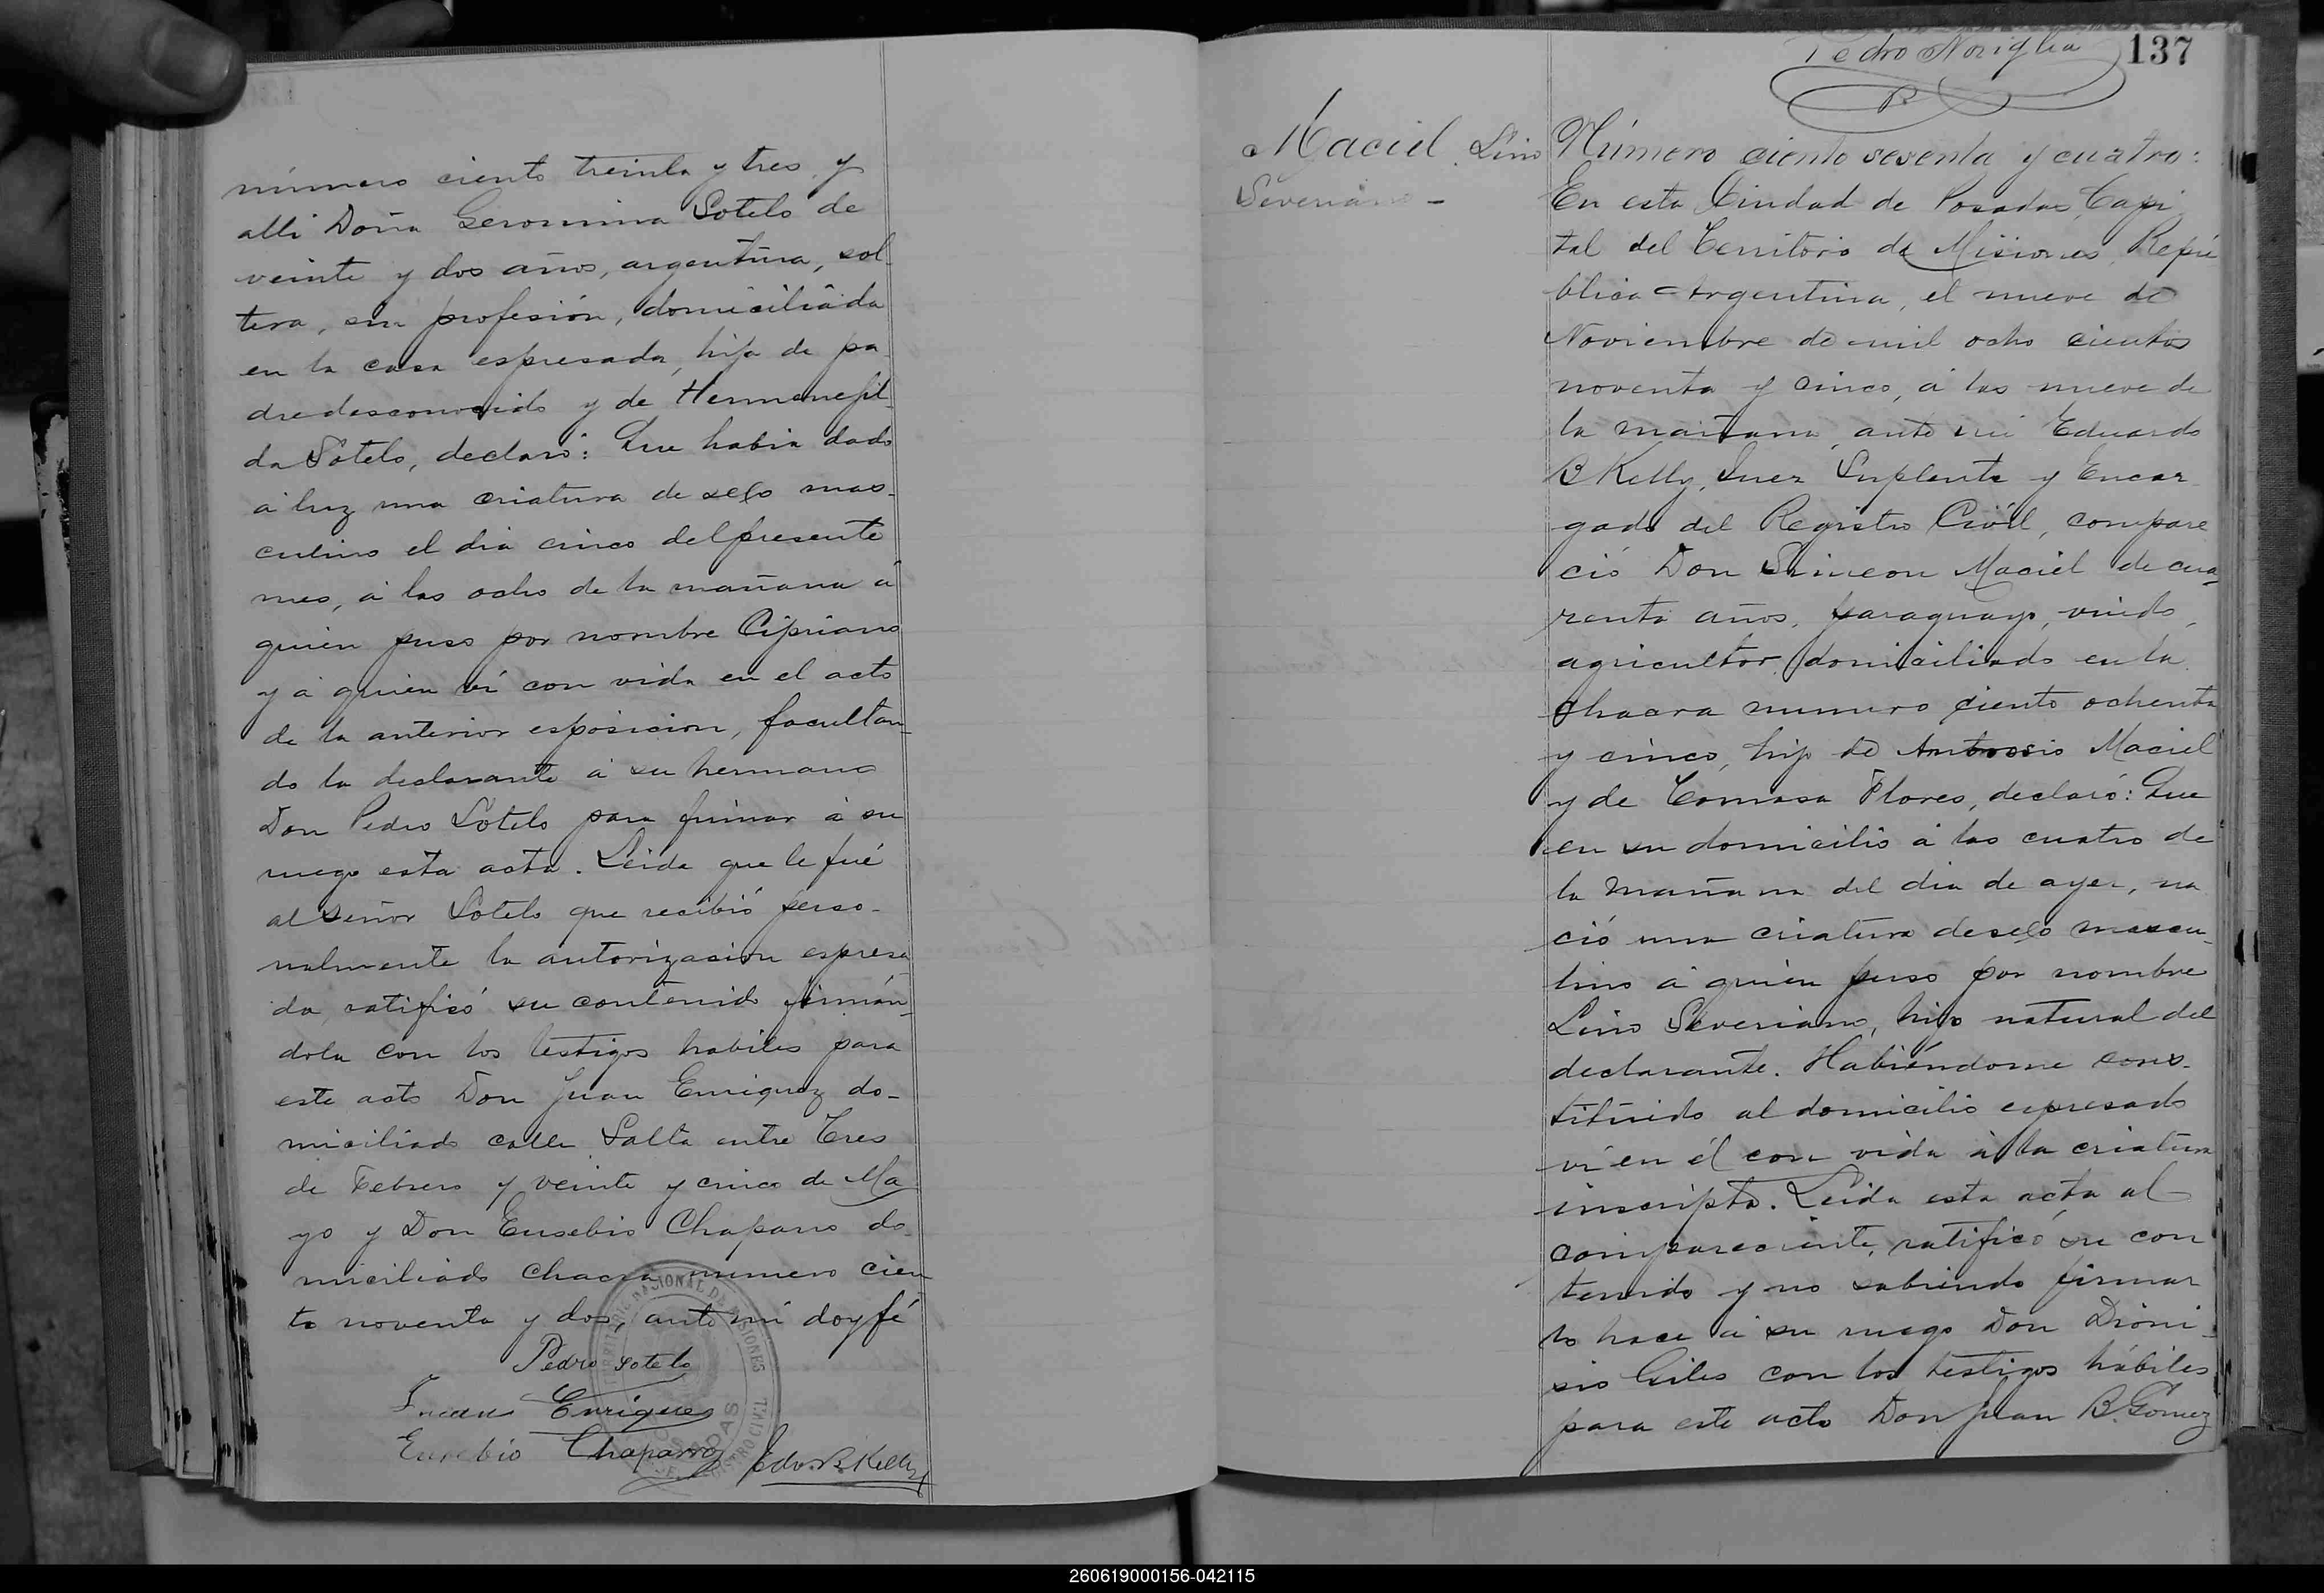 número ciento treinta y tres y
alli Doña Geronima Sotelo de
veinte y dos años, argentina, sol-
tera, sin profesión, domiciliada
en la casa espresada, hija de pa-
dre desconocido y de Hermenejil-
da Sotelo, declaró: Que habia dado
á luz una criatura de sexo mas-
culino el dia cinco del presente
mes, á las ocho de la mañana á
quien puso por nombre Cipriano
y á quien ví con vida en el acto
de la anterior esposicion, facultan-
do la declarante á su hermano
Don Pedro Sotelo para firmar á su
ruego esta acta. Leida que le fué
al Señor Sotelo que recibió perso-
nalmente la autorizacion espresa-
da, ratificó su contenido firmán-
dola con los testigos habiles para
este acto Don Juan Enriquez do-
miciliado calle Salta entre Tres
de Febrero y veinte y cinco de Ma-
yo y Don Eusebio Chaparro do-
miciliado chacra numero cien-
to noventa y dos, ante mi doy fé
Pedro Sotelo
Juan Enriques
Eusebio Chaparro Edo. B. Kelly
REGISTRO CIVIL
Pedro Noziglia 137
Maciel Lino
Severiano -
Número ciento sesenta y cuatro:
En esta Ciudad de Posadas, Capi
tal del Territorio de Misiones, Repú
blica Argentina, el nueve de
Noviembre de mil ocho cientos
noventa y cinco, á las nueve de
la mañana, ante mi Eduardo
B Kelly, Juez Suplente y Encar-
gado del Registro Civil, compare
ció Don Simeon Maciel de cua-
renta años, paraguayo, viudo,
agricultor, domiciliado en la
chacra numero ciento ochenta
y cinco, hijo de Ambrosio Maciel
y de Tomasa Flores, declaró: Que
en su domicilio á las cuatro de
la mañana del dia de ayer, na
ció una criatura de sexo mascu-
lino á quien puso por nombre
Lino Severiano, hijo natural del
declarante. Habiéndome cons-
tituido al domicilio espresado
ví en él con vida á la criatura
inscripta. Leida esta acta al
compareciente, ratificó su con
tenido y no sabiendo firmar
lo hace á su ruego Don Dioni-
sio Giles con los testigos hábiles
para este acto Don Juan B. Gomez
260619000156-042115